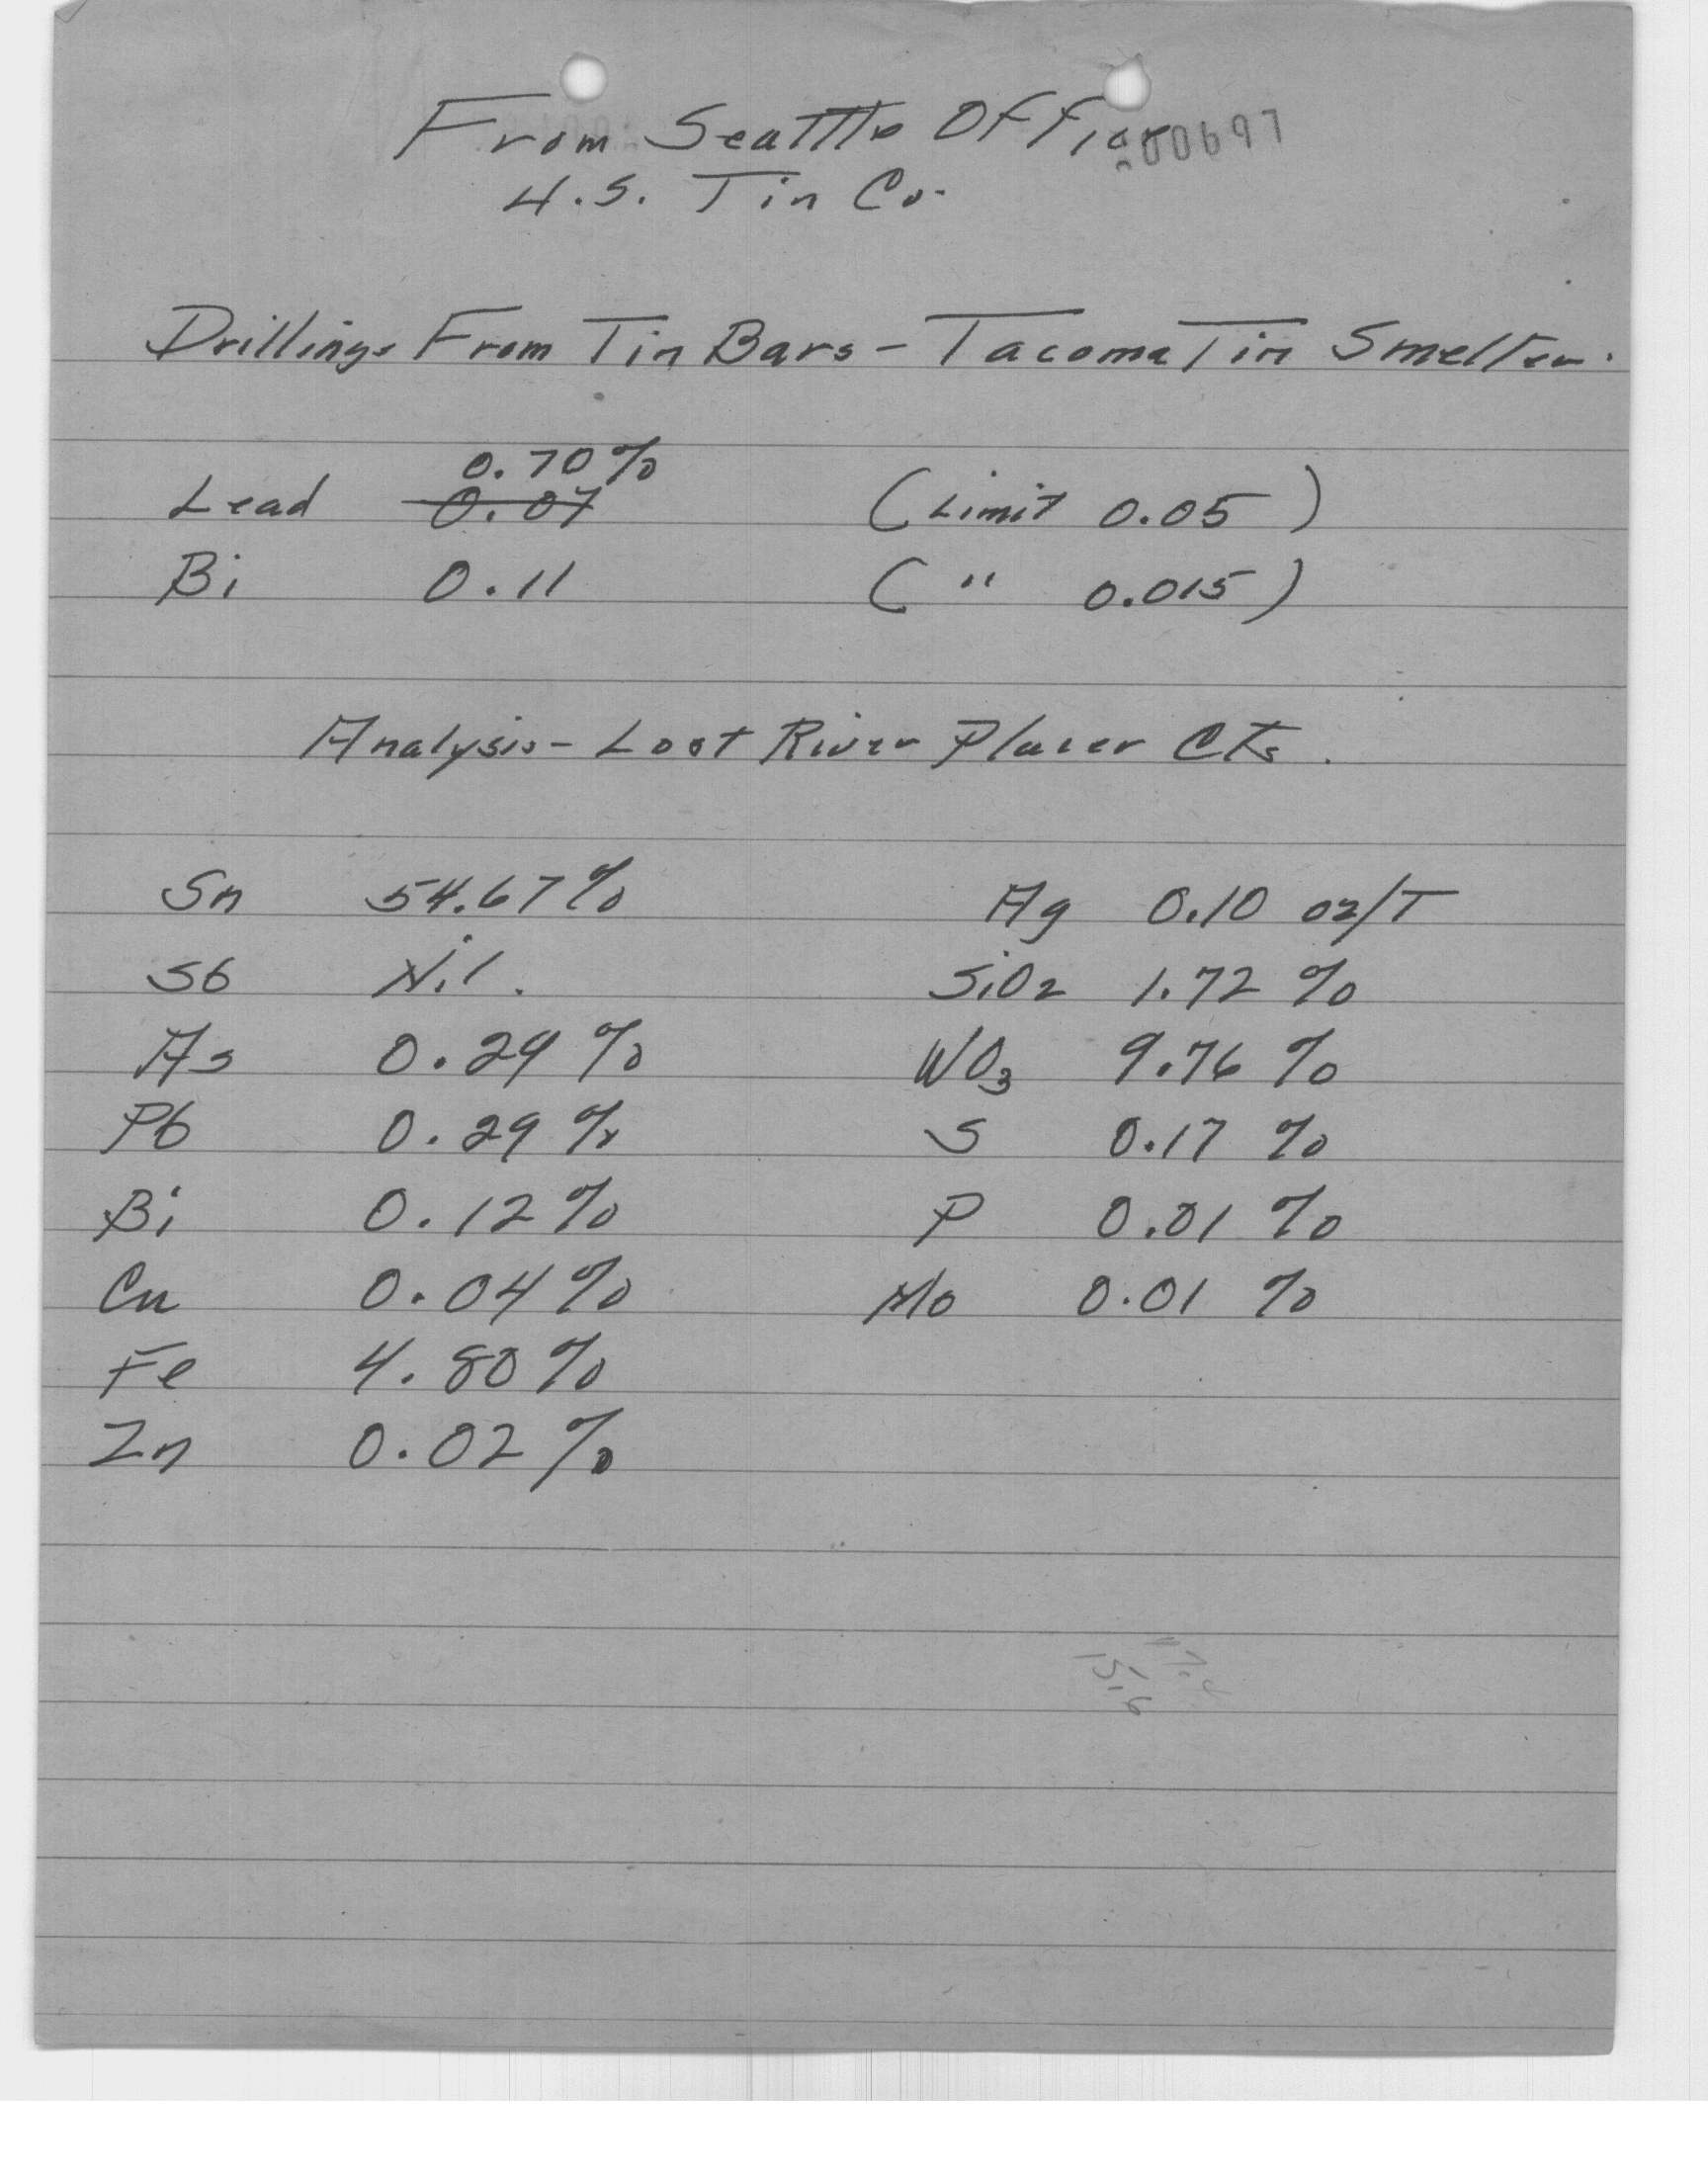 From Seattle Office
200697
U.S. Tin Co.
Drillings From Tin Bars - Tacoma Tin Smelter.
0.70%
Lead 0.07 (Limit 0.05)
Bi 0.11 ( " 0.015)
Analysis - Lost River Placer Cts.
Sn 54.67% Ag 0.10 oz/T
Sb Nil. SiO2 1.72 %
As 0.29 % WO3 9.76 %
Pb 0.29 % S 0.17 %
Bi 0.12% P 0.01 %
Cu 0.04% Mo 0.01 %
Fe 4.80%
Zn 0.02%
15.6